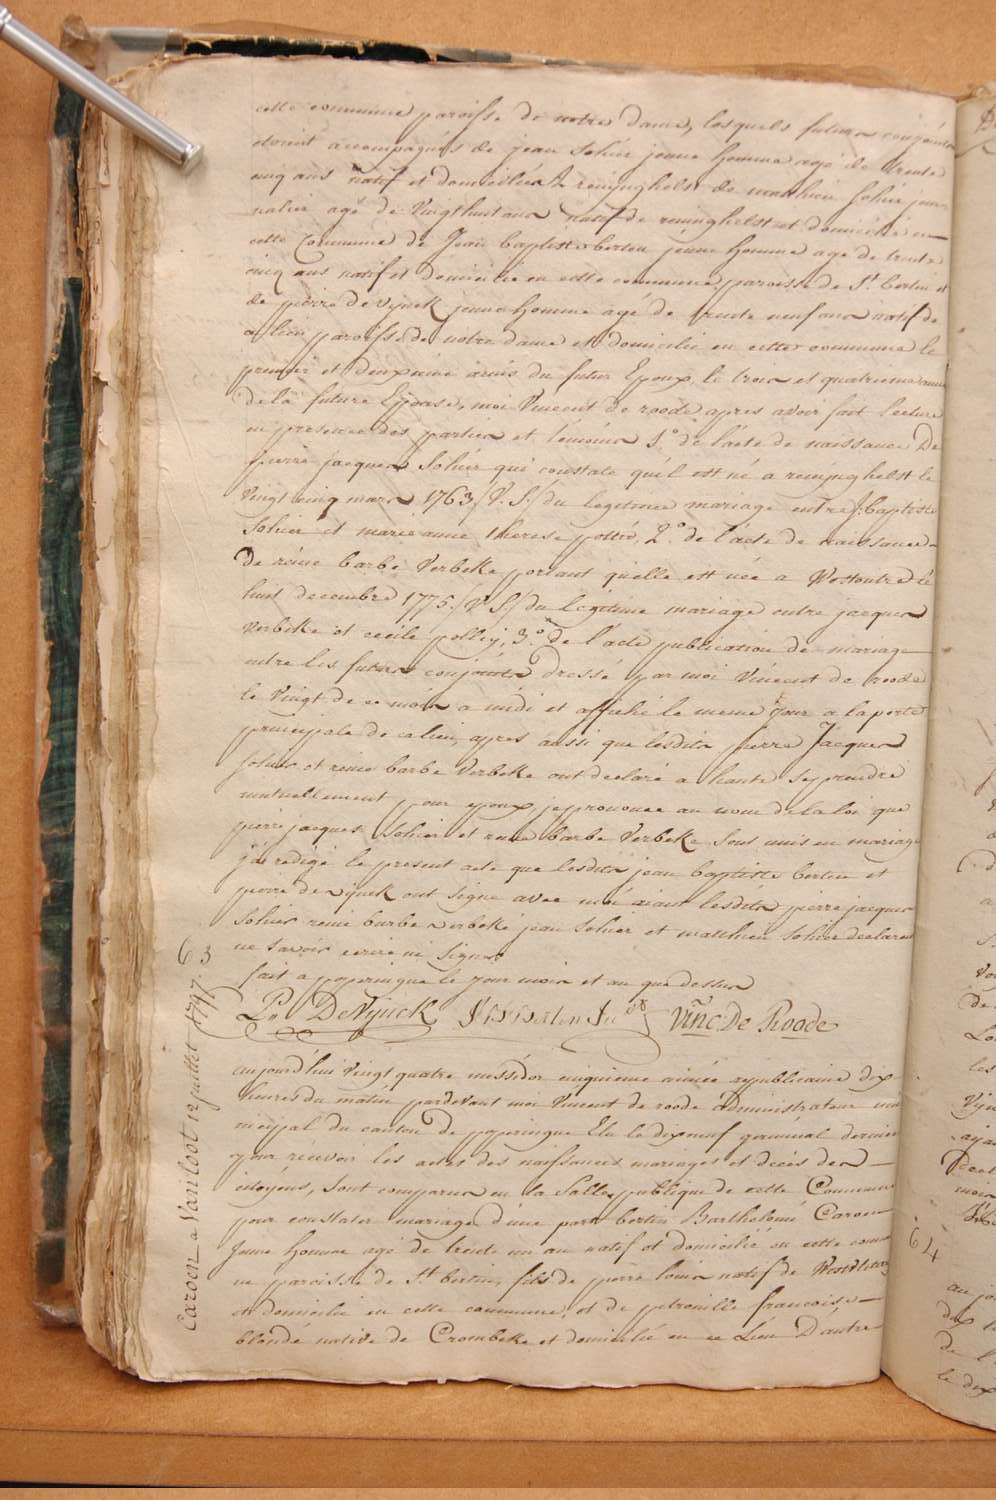 cette commune paroisse de notre dame, lesquels futurs conjoints
etoient accompagnés de jean Sohier jeune homme agé de trente
cinq ans natif et domicilié a reninghelst de matthieu Sohier jour
nalier agé de Vingthuit ans natif de reninghelst et domicilié en
cette Commune de Jean baptiste berten jeune homme agé de trente
cinq ans natif et domicilié en cette commune paroisse de St. bertin et
de pierre de vynck jeune homme agé de trente neuf ans natif de
ce lieu paroisse de notre dame et domicilié en cette commune le
premier et deuxieme amis du futur Epoux le trois et quatrieme amis
de la future Epouse, moi Vincent de roode apres avoir fait lecture
en presence des parties et témoins 1.° de l'acte de naissance De
pierre jacques Sohier qui constate qu'il est né a reninghelst le
Vingt cinq mars 1763 /V. S./ du legitime mariage entre J: baptiste
Sohier et marie anne therese pottié, 2.° de l'acte de naissance
de reine barbe Verbeke portant qu'elle est née a Westoutre le
huit decembre 1775 /V S/ du légitime mariage entre jacques
Verbeke et cecile polley, 3.° de l'acte publication de mariage
entre les futurs conjoints dressé par moi Vincent de roode
le Vingt de ce mois a midi et affiché le meme jour a la porte
principale de ce lieu, apres aussi que lesdits pierre Jacques
Sohier et reine barbe Verbeke ont declaré a haute se prendre
mutuellement pour epoux je prononce au nom de la loi que
pierre jacques Sohier et reine barbe Verbeke Sont unis en mariage
j'ai redigé le present acte que lesdits jean baptiste berten et
pierre de vynck ont signe avec moi aiant lesdits pierre jacques
Sohier reine barbe verbeke jean Sohier et matthieu Sohier declarent
ne savoir ecrire ni signer
fait a poperingue le jour mois et an que dessus
DeVynck J B Berten Vinc: De Roode
63
Caroen a Vanloot 12 juillet 1797
aujourd'hui Vingt quatre messidor cinquieme année republicaine dix
heures du matin pardevant moi Vincent de roode administrateur mu
nicipal du canton de poperingue Elu le dixneuf germinal dernier
pour récevoir les actes des naissances mariages et decès des
citoyens, sont comparus en la Salle publique de cette Commune
pour constater mariage d'une part bertin Barthelomé Caroen
Jeune homme agé de trente un an natif et domicilié en cette com
ne paroisse de St bertin, fils de pierre louis natif de Westvleter
et domicilié en cette commune, et de petronille francoise
blondé native de Crombeke et domicilié en ce Lieu D'autre
64